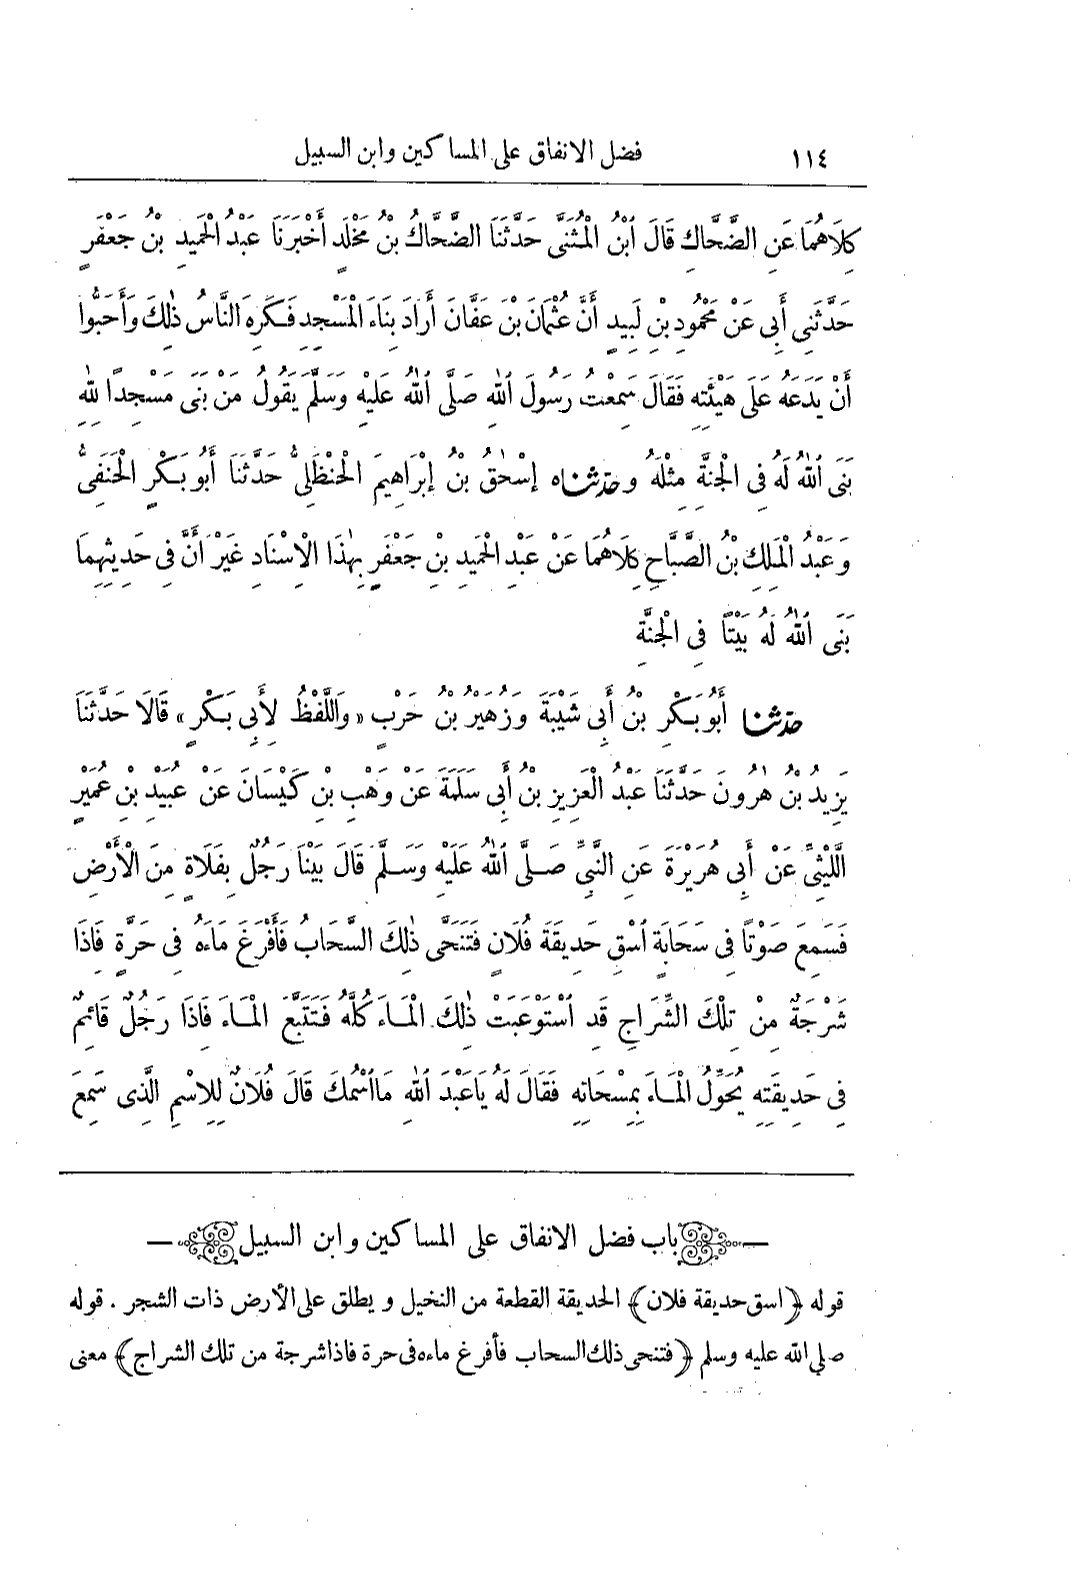 ١١٤ فضل الانفاق على المساكين وابن السبيل
كِلَاهُمَا عَنِ الضَّحَّاكِ قَالَ ابْنُ الْمُثَنَّى حَدَّثَنَا الضَّحَّاكُ بْنُ مَخْلَدٍ أَخْبَرَنَا عَبْدُ الْحَمِيدِ بْنُ جَعْفَرٍ
حَدَّثَنِى أَبِى عَنْ مَحْمُودِ بْنِ لَبِيدٍ أَنَّ عُثْمَانَ بْنَ عَفَّانَ أَرَادَ بِنَاءَ الْمَسْجِدِ فَكَرِهَ النَّاسُ ذٰلِكَ وَأَحَبُّوا
أَنْ يَدَعَهُ عَلَى هَيْئَتِهِ فَقَالَ سَمِعْتُ رَسُولَ اللهِ صَلَّى اللهُ عَلَيْهِ وَسَلَّمَ يَقُولُ مَنْ بَنَى مَسْجِدًا لِلهِ
بَنَى اللهُ لَهُ فِى الْجَنَّةِ مِثْلَهُ وحدثناه إِسْحٰقُ بْنُ إِبْرَاهِيمَ الْحَنْظَلِىُّ حَدَّثَنَا أَبُو بَكْرٍ الْحَنَفِىُّ
وَعَبْدُ الْمَلِكِ بْنُ الصَّبَّاحِ كِلَاهُمَا عَنْ عَبْدِ الْحَمِيدِ بْنِ جَعْفَرٍ بِهٰذَا الْإِسْنَادِ غَيْرَ أَنَّ فِى حَدِيثِهِمَا
بَنَى اللهُ لَهُ بَيْتًا فِى الْجَنَّةِ
حدثنا أَبُو بَكْرِ بْنُ أَبِى شَيْبَةَ وَزُهَيْرُ بْنُ حَرْبٍ «وَاللَّفْظُ لِأَبِى بَكْرٍ» قَالَا حَدَّثَنَا
يَزِيدُ بْنُ هٰرُونَ حَدَّثَنَا عَبْدُ الْعَزِيزِ بْنُ أَبِى سَلَمَةَ عَنْ وَهْبِ بْنِ كَيْسَانَ عَنْ عُبَيْدِ بْنِ عُمَيْرٍ
اللَّيْثِىِّ عَنْ أَبِى هُرَيْرَةَ عَنِ النَّبِىِّ صَلَّى اللهُ عَلَيْهِ وَسَلَّمَ قَالَ بَيْنَا رَجُلٌ بِفَلَاةٍ مِنَ الْأَرْضِ
فَسَمِعَ صَوْتًا فِى سَحَابَةٍ اسْقِ حَدِيقَةَ فُلَانٍ فَتَنَحَّى ذٰلِكَ السَّحَابُ فَأَفْرَغَ مَاءَهُ فِى حَرَّةٍ فَاذَا
شَرْجَةٌ مِنْ تِلْكَ الشِّرَاجِ قَدِ اسْتَوْعَبَتْ ذٰلِكَ الْمَاءَ كُلَّهُ فَتَتَبَّعَ الْمَاءَ فَاذَا رَجُلٌ قَائِمٌ
فِى حَدِيقَتِهِ يُحَوِّلُ الْمَاءَ بِمِسْحَاتِهِ فَقَالَ لَهُ يَاعَبْدَ اللهِ مَااسْمُكَ قَالَ فُلَانٌ لِلِاسْمِ الَّذِى سَمِعَ
باب فضل الانفاق على المساكين وابن السبيل
قوله ﴿اسق حديقة فلان﴾ الحديقة القطعة من النخيل و يطلق على الأرض ذات الشجر . قوله
صلى الله عليه وسلم ﴿فتنحى ذلك السحاب فأفرغ ماءه فى حرة فاذا شرجة من تلك الشراج﴾ معنى